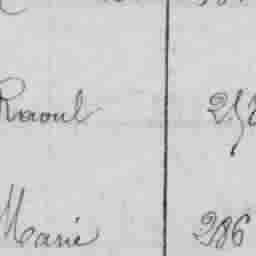 Raoul 258
Marie 286